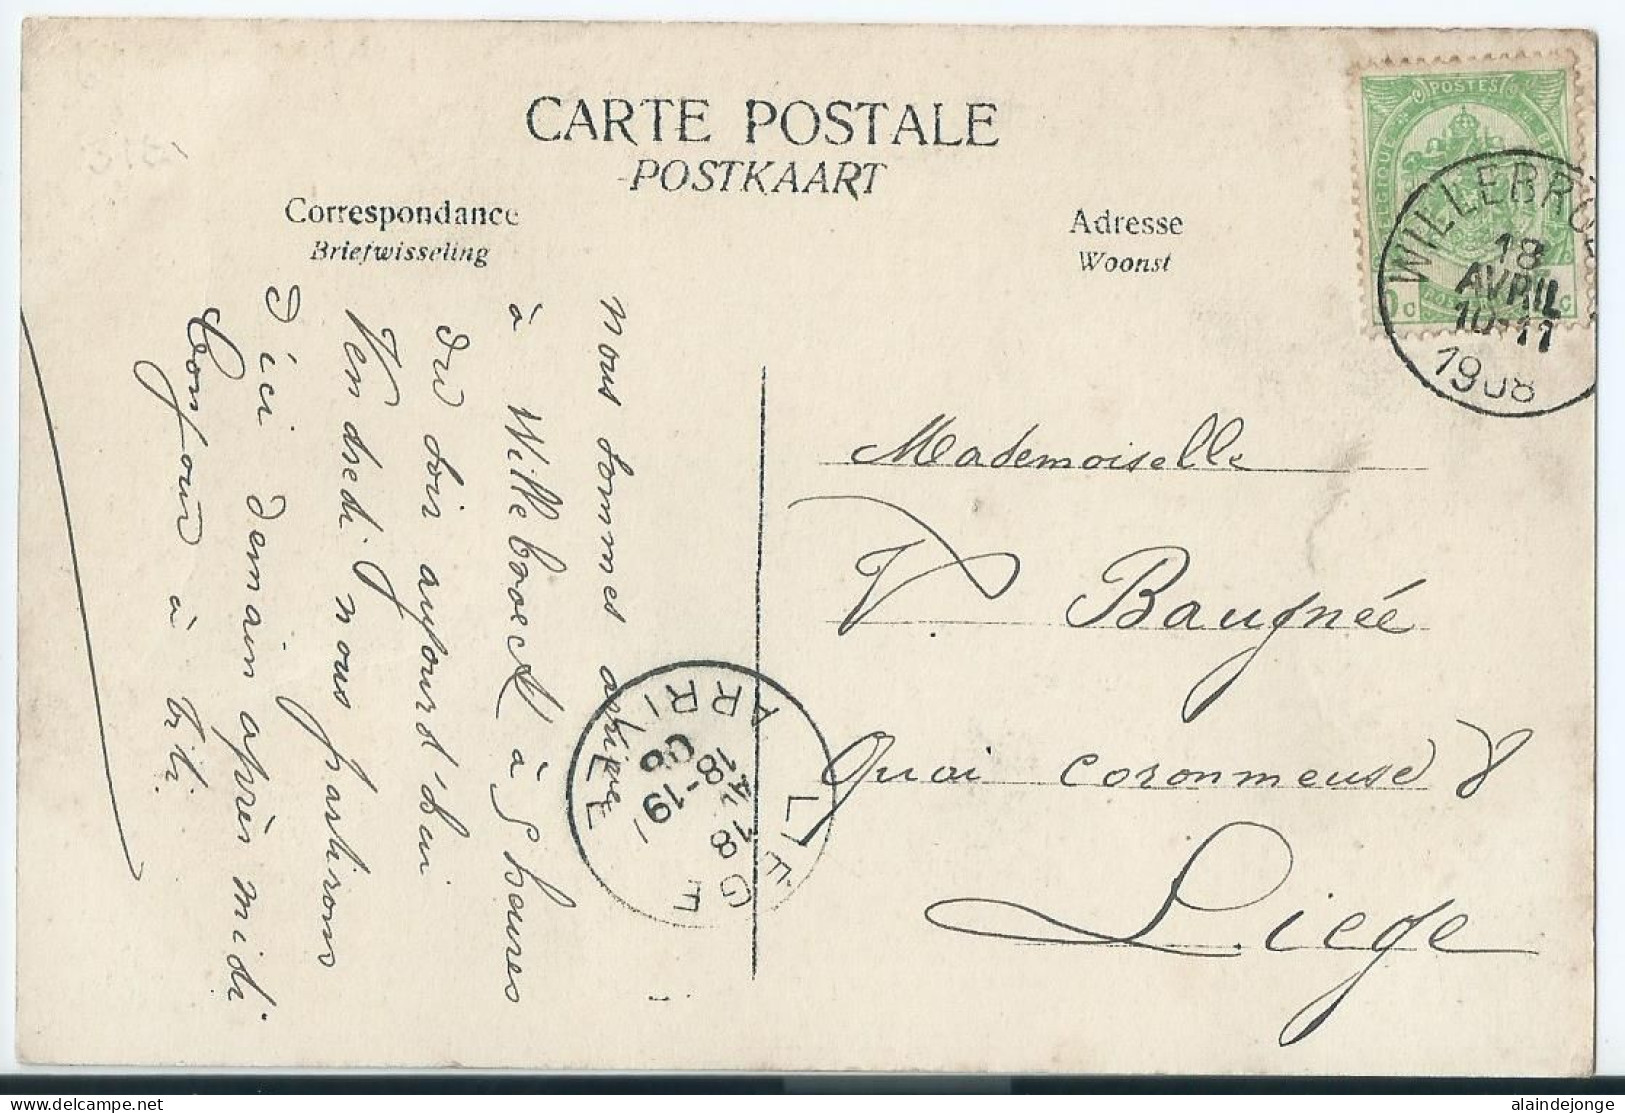 CARTE POSTALE
POSTKAART
Correspondance
Briefwisseling
Adresse
Woonst
POSTES
WILLEBRO
18
AVRIL
10-11
1908
nous sommes arrivé
à Willebroeck à 9 heures
du soir aujourd'hui
Vendredi nous partirons
d'ici demain après midi
Bonjour à titi
Mademoiselle
V. Baugnée
Quai coronmeuse 8
Liege
LIEGE
ARRIVEE
18-19
08
alaindejonge